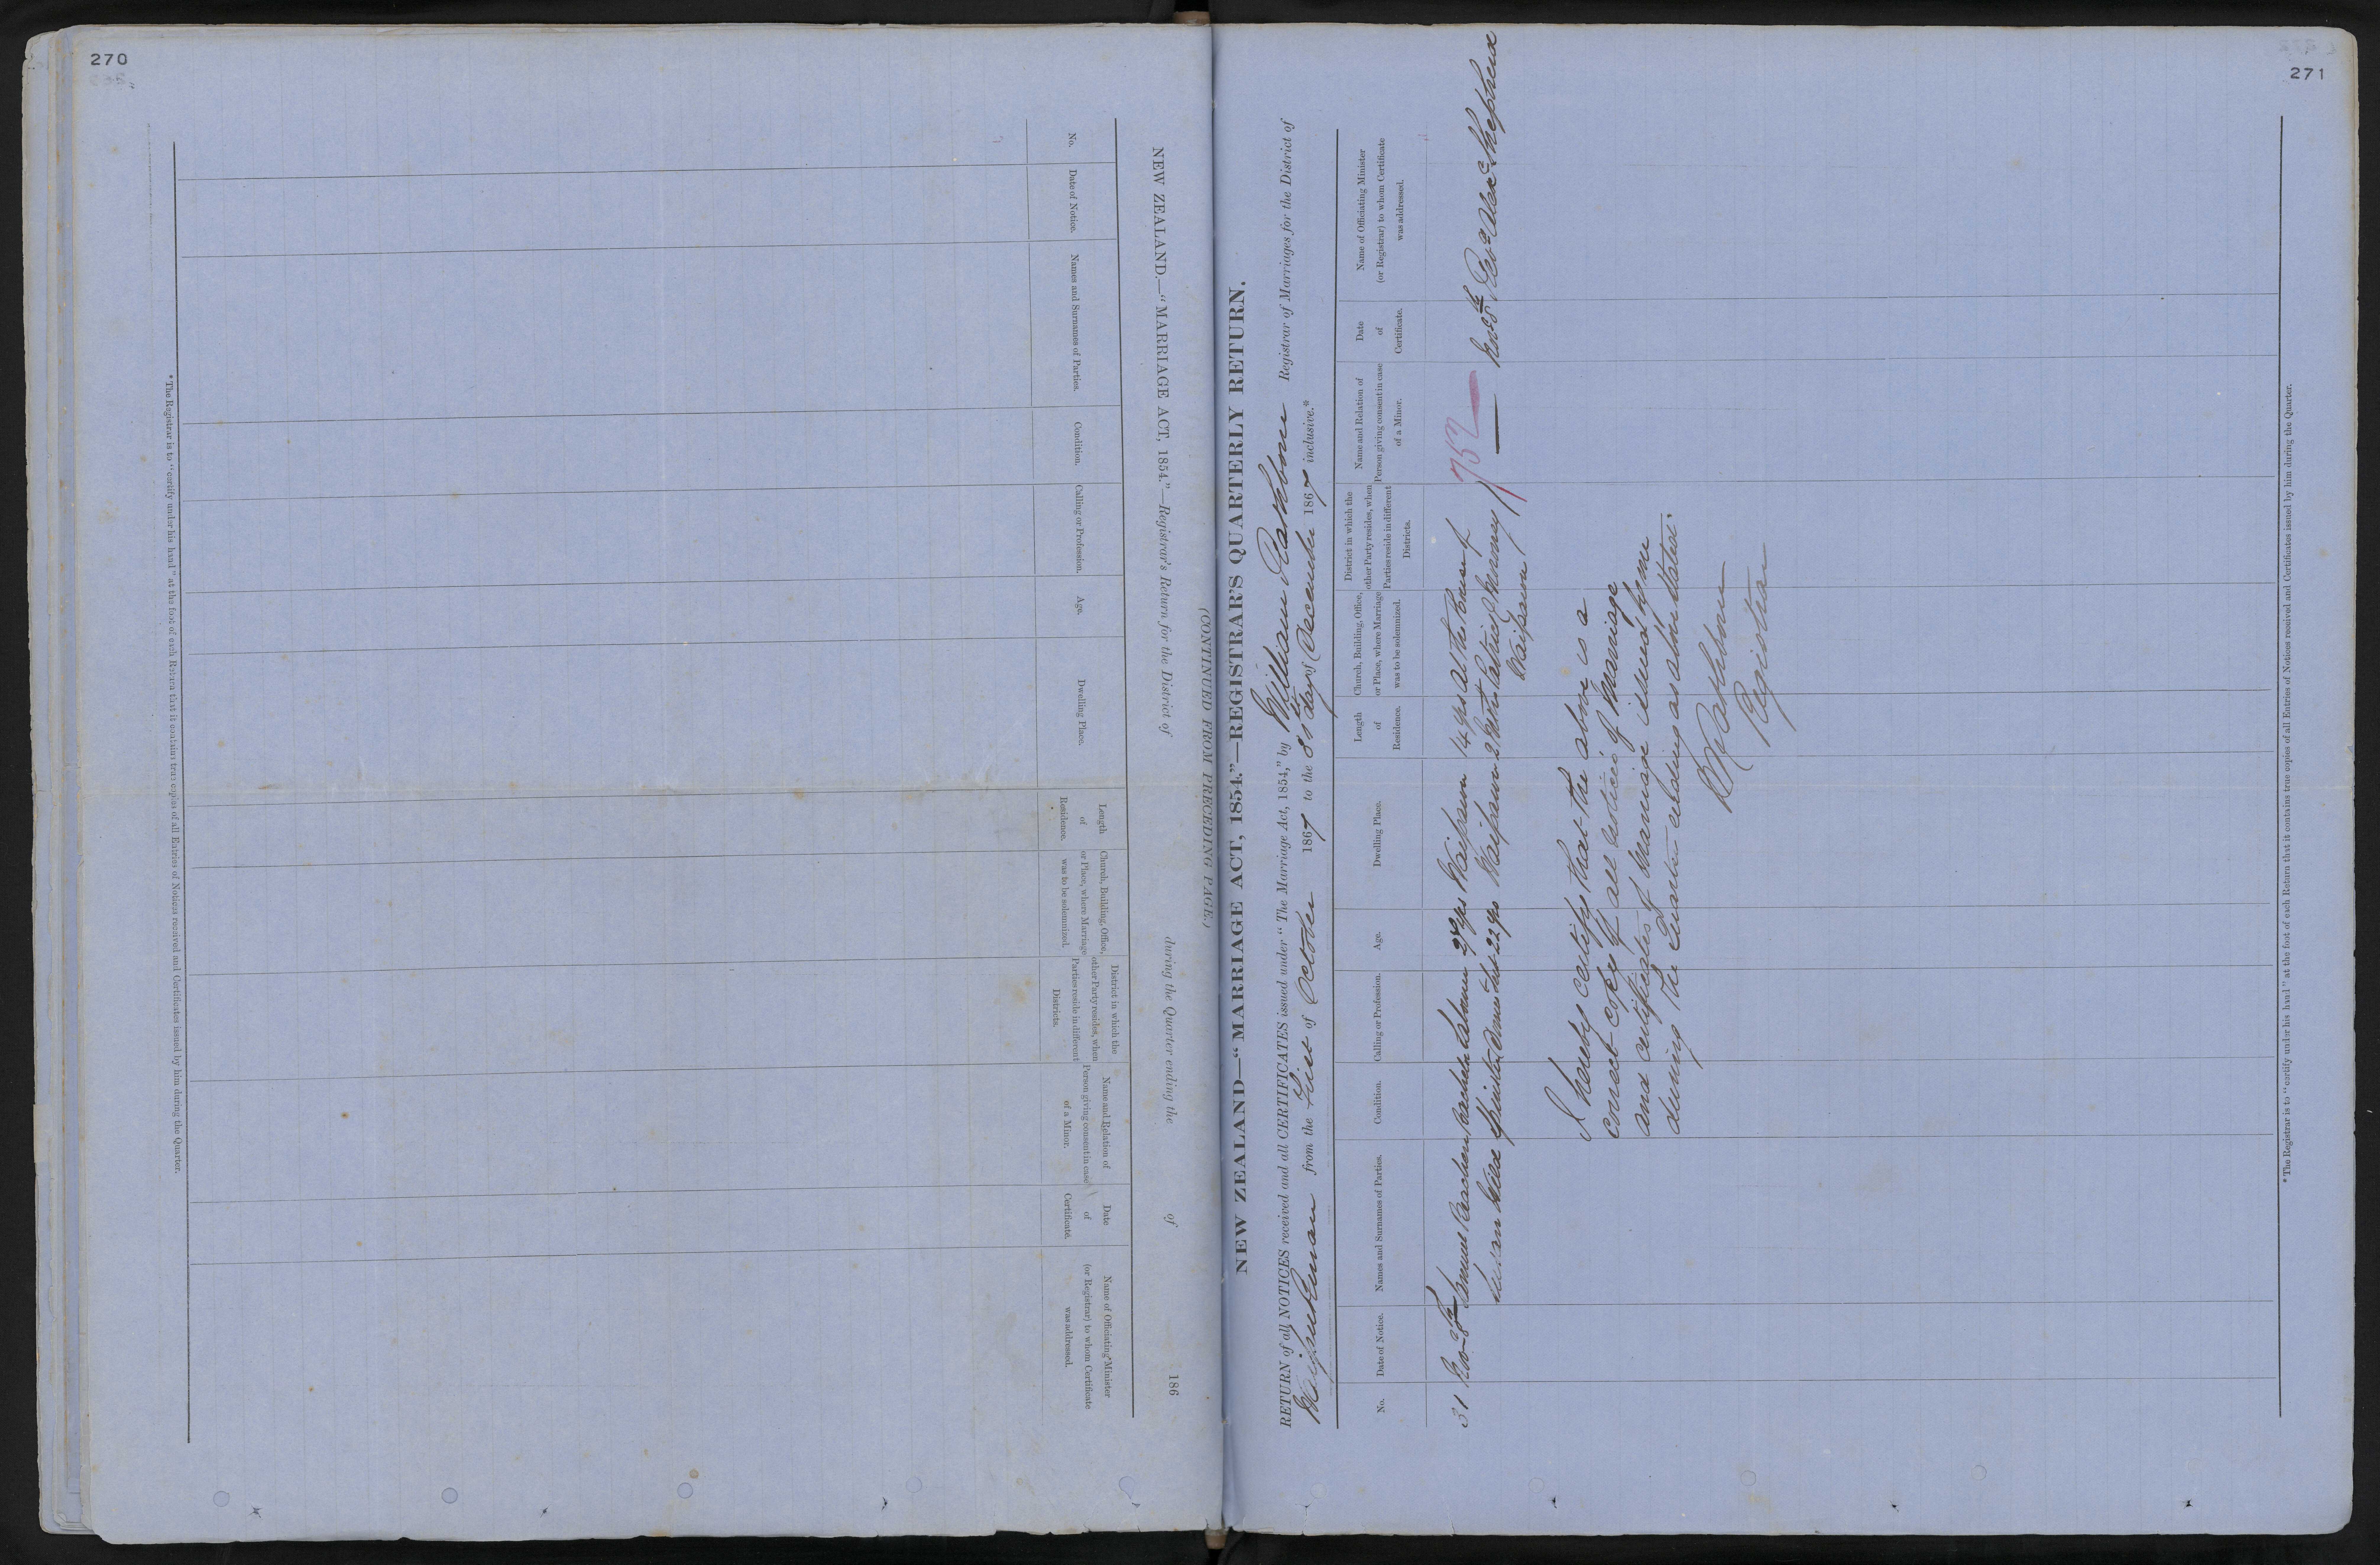 270
NEW ZEALAND.—"MARRIAGE ACT, 1854."—Registrar's Return for the District of during the Quarter ending the of 186
No.
Date of Notice.
Names and Surnames of Parties.
Condition.
Calling or Profession.
Age.
Dwelling Place.
Length
of
Residence.
Church, Building, Office,
or Place, where Marriage
was to be solemnized.
District in which the
other Party resides, when
Parties reside in different
Districts.
Name and Relation of
Person giving consent in case
of a Minor.
Date
of
Certificate.
Name of Officiating Minister
(or Registrar) to whom Certificate
was addressed.
*The Registrar is to "certify under his hand" at the foot of each Return that it contains true copies of all Entries of Notices received and Certificates issued by him during the Quarter.
271
(CONTINUED FROM PRECEDING PAGE.)
NEW ZEALAND—"MARRIAGE ACT, 1854."—REGISTRAR'S QUARTERLY RETURN.
RETURN of all NOTICES received and all CERTIFICATES issued under "The Marriage Act, 1854," by William Rathbone Registrar of Marriages for the District of
Waipukurau from the First of October 1867 to the 31st day of December 1867 inclusive.*
No.
Date of Notice.
Names and Surnames of Parties.
Condition.
Calling or Profession.
Age.
Dwelling Place.
Length
of
Residence.
Church, Building, Office,
or Place, where Marriage
was to be solemnized.
District in which the
other Party resides, when
Parties reside in different
Districts.
Name and Relation of
Person giving consent in case
of a Minor.
Date
of
Certificate.
Name of Officiating Minister
(or Registrar) to whom Certificate
was addressed.
752
31 Nov 8th Samuel Bachelor Labourer 27 yrs Waipawa 14 yrs At the House of
Spinster Domestic 22 yrs Waipawa 2 Patrick Nov 8th Revd Alexr Shepherd
Waipawa
I hereby certify that the above is a
correct copy of all Notices of Marriage
and certificates of Marriage issued by me
during the Quarter ending as above stated.
W Rathbone
Registrar
*The Registrar is to "certify under his hand" at the foot of each Return that it contains true copies of all Entries of Notices received and Certificates issued by him during the Quarter.